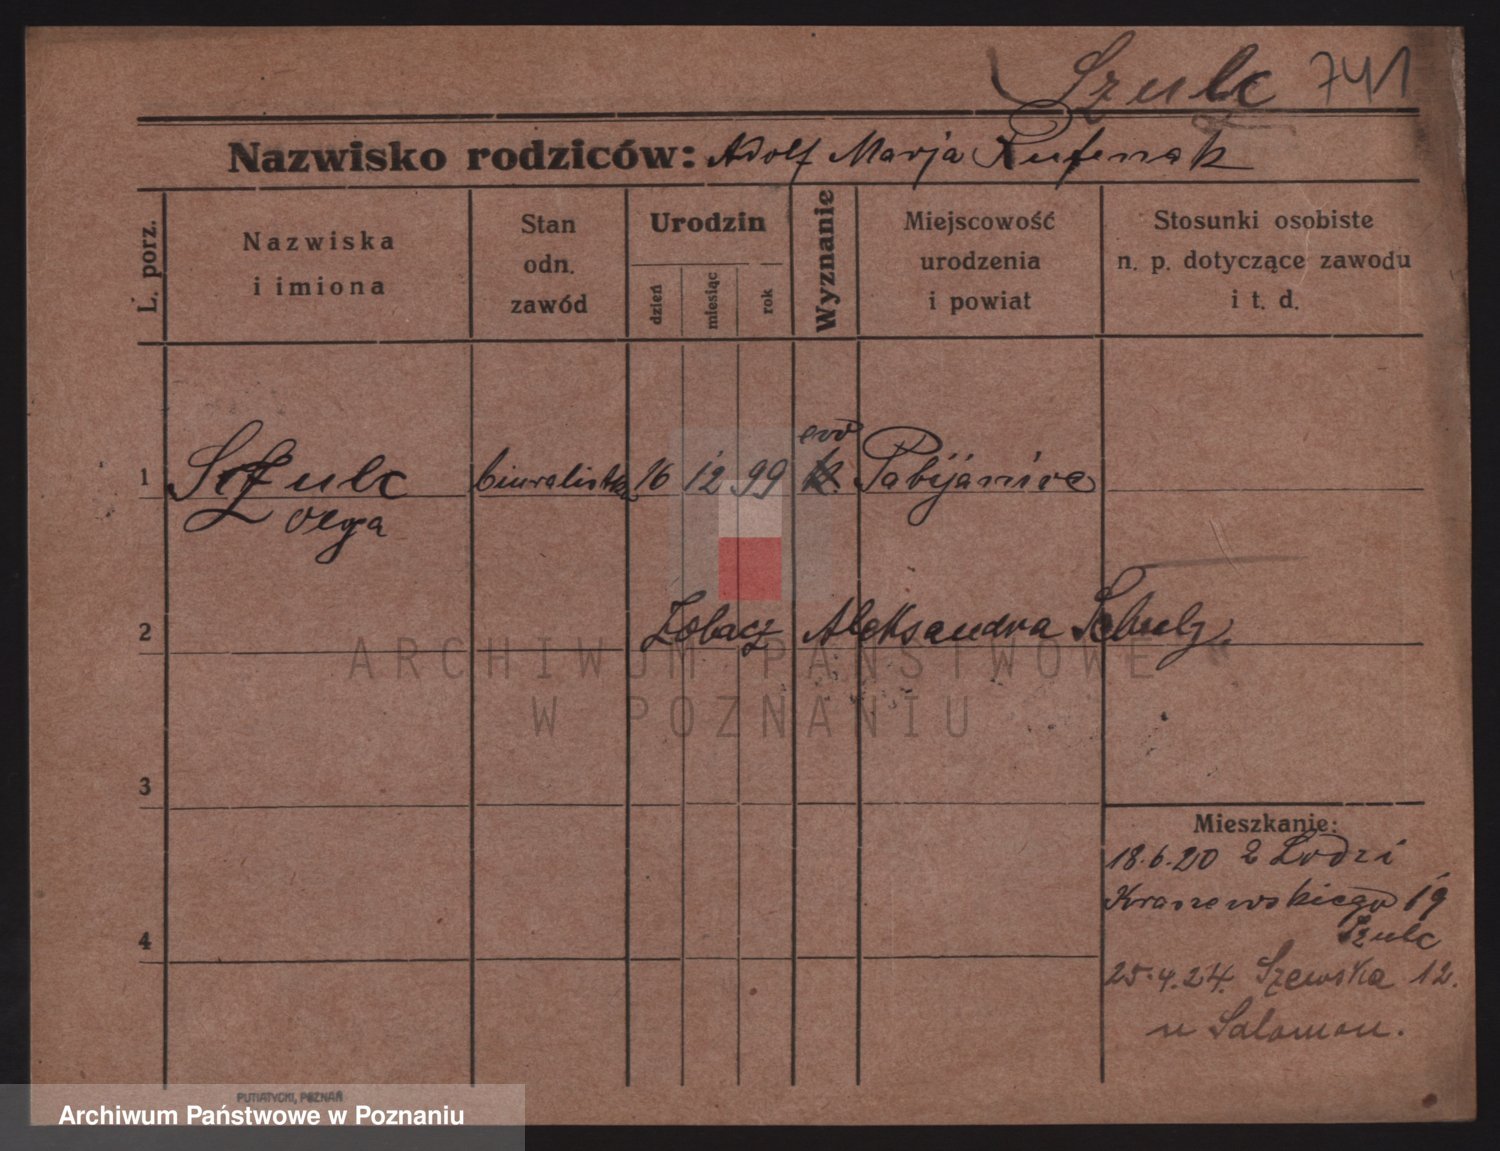 Szulc 741
Nazwisko rodziców: Adolf Marja
L. porz.
Nazwiska
i imiona
Stan
odn.
zawód
Urodzin
dzień
miesiąc
rok
Wyznanie
Miejscowość
urodzenia
i powiat
Stosunki osobiste
n. p. dotyczące zawodu
i t. d.
1 Szulc biuralistka 16 12 99 k. Pabijanice
Olga
2 Zobacz Aleksandra Schulz
ARCHIWUM PAŃSTWOWE
W POZNANIU
3
Mieszkanie:
18.6.20 z Łodzi
Kraszewskiego 19
Szulc
4
25.4.24. Szewska 12.
u Salomon.
PUTIATYCKI, POZNAŃ
Archiwum Państwowe w Poznaniu